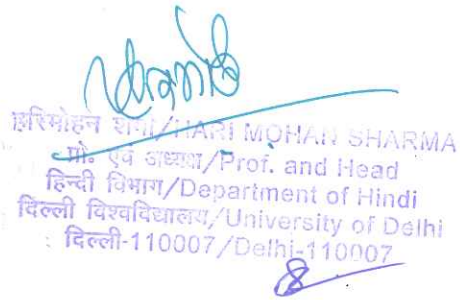 हरिमोहन शर्मा/HARI MOHAN SHARMA
प्रो. एवं अध्यक्ष/Prof. and Head
हिन्दी विभाग/Department of Hindi
दिल्ली विश्वविद्यालय/University of Delhi
दिल्ली-110007/Delhi-110007